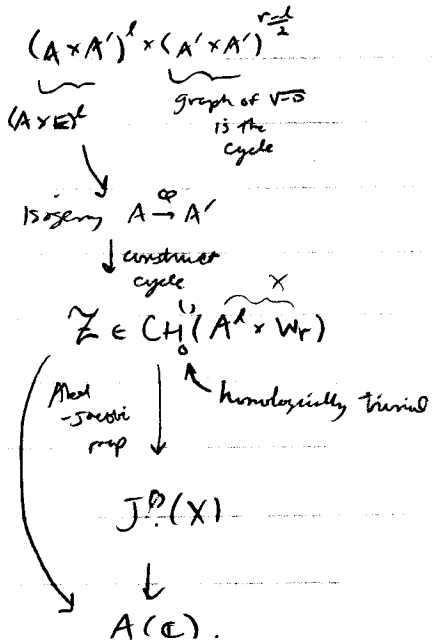 (A × A')^l × (A' × A')^{\frac{r-l}{2}}
(A × E)^l
graph of √-D
is the
cycle
Isogeny A \xrightarrow{φ} A'
↓ construct
cycle
X
Z ∈ CH_0^{()}(A^l × W_r)
Abel
-Jacobi
map
homologically trivial
J^{?}(X)
↓
A(ℂ).